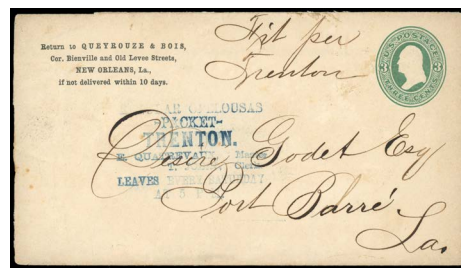 Return to QUEYROUZE & BOIS,
Cor. Bienville and Old Levee Streets,
NEW ORLEANS, La.,
if not delivered within 10 days.
per
Trenton
U.S. POSTAGE
THREE CENTS
OPELOUSAS
-PACKET-
TRENTON.
LEAVES EVERY
AT 5 P.
Godet Esq
Port Barré
La.